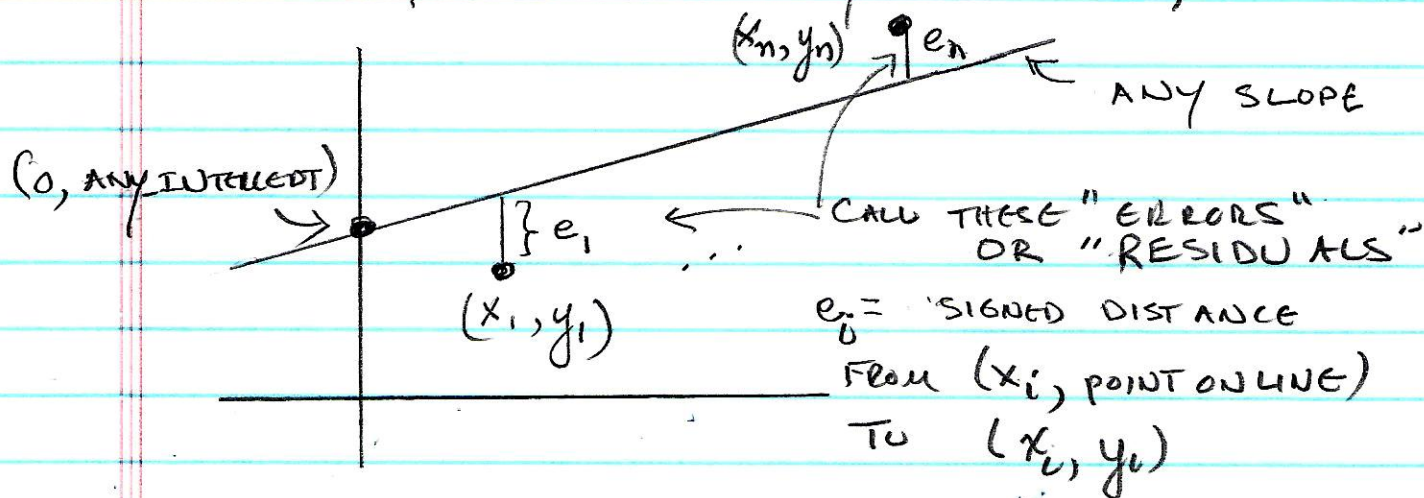 (xn, yn)
en
ANY SLOPE
(0, ANY INTERCEPT)
} e1
CALL THESE "ERRORS"
OR "RESIDUALS"
...
(x1, y1)
ei = SIGNED DISTANCE
FROM (xi, POINT ON LINE)
TO (xi, yi)